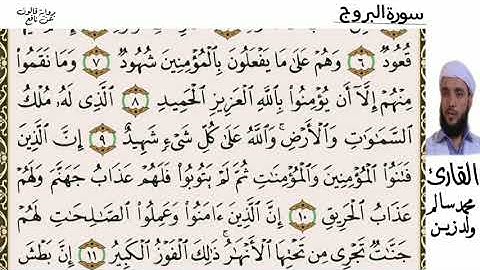 سورة البروج
برواية قالون
عن نافع
قُعُودٌ ٦ وَهُمْ عَلَىٰ مَا يَفْعَلُونَ بِالْمُؤْمِنِينَ شُهُودٌ ٧ وَمَا نَقَمُوا
مِنْهُمُ إِلَّا أَن يُؤْمِنُوا بِاللَّهِ الْعَزِيزِ الْحَمِيدِ ٨ الَّذِي لَهُ مُلْكُ
السَّمَاوَاتِ وَالْأَرْضِ وَاللَّهُ عَلَىٰ كُلِّ شَيْءٍ شَهِيدٌ ٩ إِنَّ الَّذِينَ
فَتَنُوا الْمُؤْمِنِينَ وَالْمُؤْمِنَاتِ ثُمَّ لَمْ يَتُوبُوا فَلَهُمْ عَذَابُ جَهَنَّمَ وَلَهُمْ
عَذَابُ الْحَرِيقِ ١٠ إِنَّ الَّذِينَ ءَامَنُوا وَعَمِلُوا الصَّالِحَاتِ لَهُمْ
جَنَّاتٌ تَجْرِي مِن تَحْتِهَا الْأَنْهَارُ ذَٰلِكَ الْفَوْزُ الْكَبِيرُ ١١ إِنَّ بَطْشَ
القارئ
محمد سالم
ولد زين